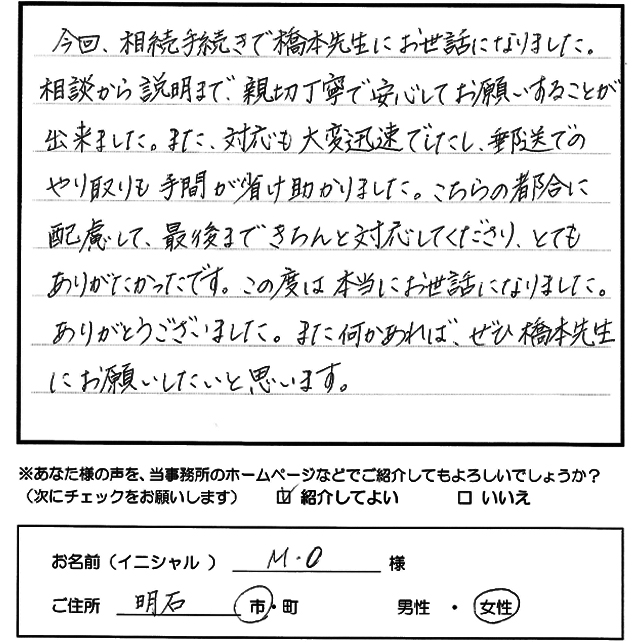 今回、相続手続きで橋本先生にお世話になりました。
相談から説明まで、親切丁寧で安心してお願いすることが
出来ました。また、対応も大変迅速でしたし、郵送での
やり取りも手間が省け助かりました。こちらの都合に
配慮して、最後まできちんと対応してくださり、とても
ありがたかったです。この度は本当にお世話になりました。
ありがとうございました。また何かあれば、ぜひ橋本先生
にお願いしたいと思います。
※あなた様の声を、当事務所のホームページなどでご紹介してもよろしいでしょうか?
(次にチェックをお願いします) ☑ 紹介してよい □ いいえ
お名前(イニシャル ) M・O 様
ご住所 明石 市・町 男性 ・ 女性